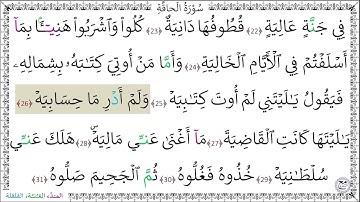 سُورَةُ الْحَاقَّةِ
فِي جَنَّةٍ عَالِيَةٍ ﴿22﴾ قُطُوفُهَا دَانِيَةٌ ﴿23﴾ كُلُوا۟ وَٱشْرَبُوا۟ هَنِيٓـًٔۢا بِمَآ
أَسْلَفْتُمْ فِي ٱلْأَيَّامِ ٱلْخَالِيَةِ ﴿24﴾ وَأَمَّا مَنْ أُوتِيَ كِتَـٰبَهُۥ بِشِمَالِهِۦ
فَيَقُولُ يَـٰلَيْتَنِي لَمْ أُوتَ كِتَـٰبِيَهْ ﴿25﴾ وَلَمْ أَدْرِ مَا حِسَابِيَهْ ﴿26﴾
يَـٰلَيْتَهَا كَانَتِ ٱلْقَاضِيَةَ ﴿27﴾ مَآ أَغْنَىٰ عَنِّي مَالِيَهْ ۜ ﴿28﴾ هَلَكَ عَنِّي
سُلْطَـٰنِيَهْ ﴿29﴾ خُذُوهُ فَغُلُّوهُ ﴿30﴾ ثُمَّ ٱلْجَحِيمَ صَلُّوهُ ﴿31﴾
المد، الغنة، القلقلة